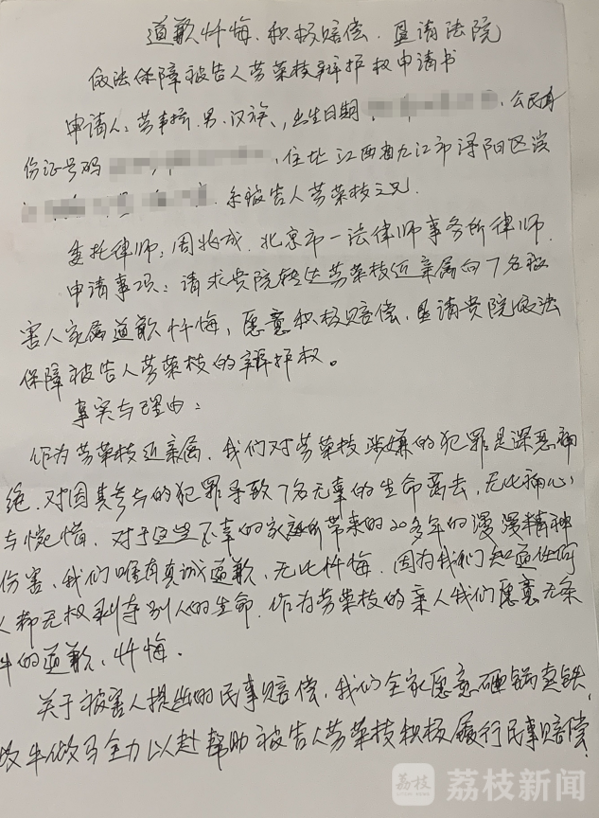 道歉忏悔、积极赔偿、恳请法院
依法保障被告人劳荣枝辩护权申请书
申请人：劳声桥、男、汉族、，出生日期 公民身
份证号码 、住址江西省九江市浔阳区滨
系被告人劳荣枝之兄.
委托律师：周兆成、北京市一法律师事务所律师.
申请事项：请求贵院转达劳荣枝近亲属向7名被
害人家属道歉忏悔，愿意积极赔偿、恳请贵院依法
保障被告人劳荣枝的辩护权。
事实与理由：
作为劳荣枝近亲属，我们对劳荣枝涉嫌的犯罪是深恶痛
绝、对因其参与的犯罪导致7名无辜的生命离去，无比痛心
与惋惜、对于这些不幸的家庭所带来的20多年的漫漫精神
伤害、我们唯有真诚道歉、无比忏悔、因为我们知道任何
人都无权剥夺别人的生命、作为劳荣枝的亲人我们愿意无条
件的道歉、忏悔.
关于被害人提出的民事赔偿、我们全家愿意砸锅卖铁、
做牛做马全力以赴帮助被告人劳荣枝积极履行民事赔偿
荔枝 荔枝新闻